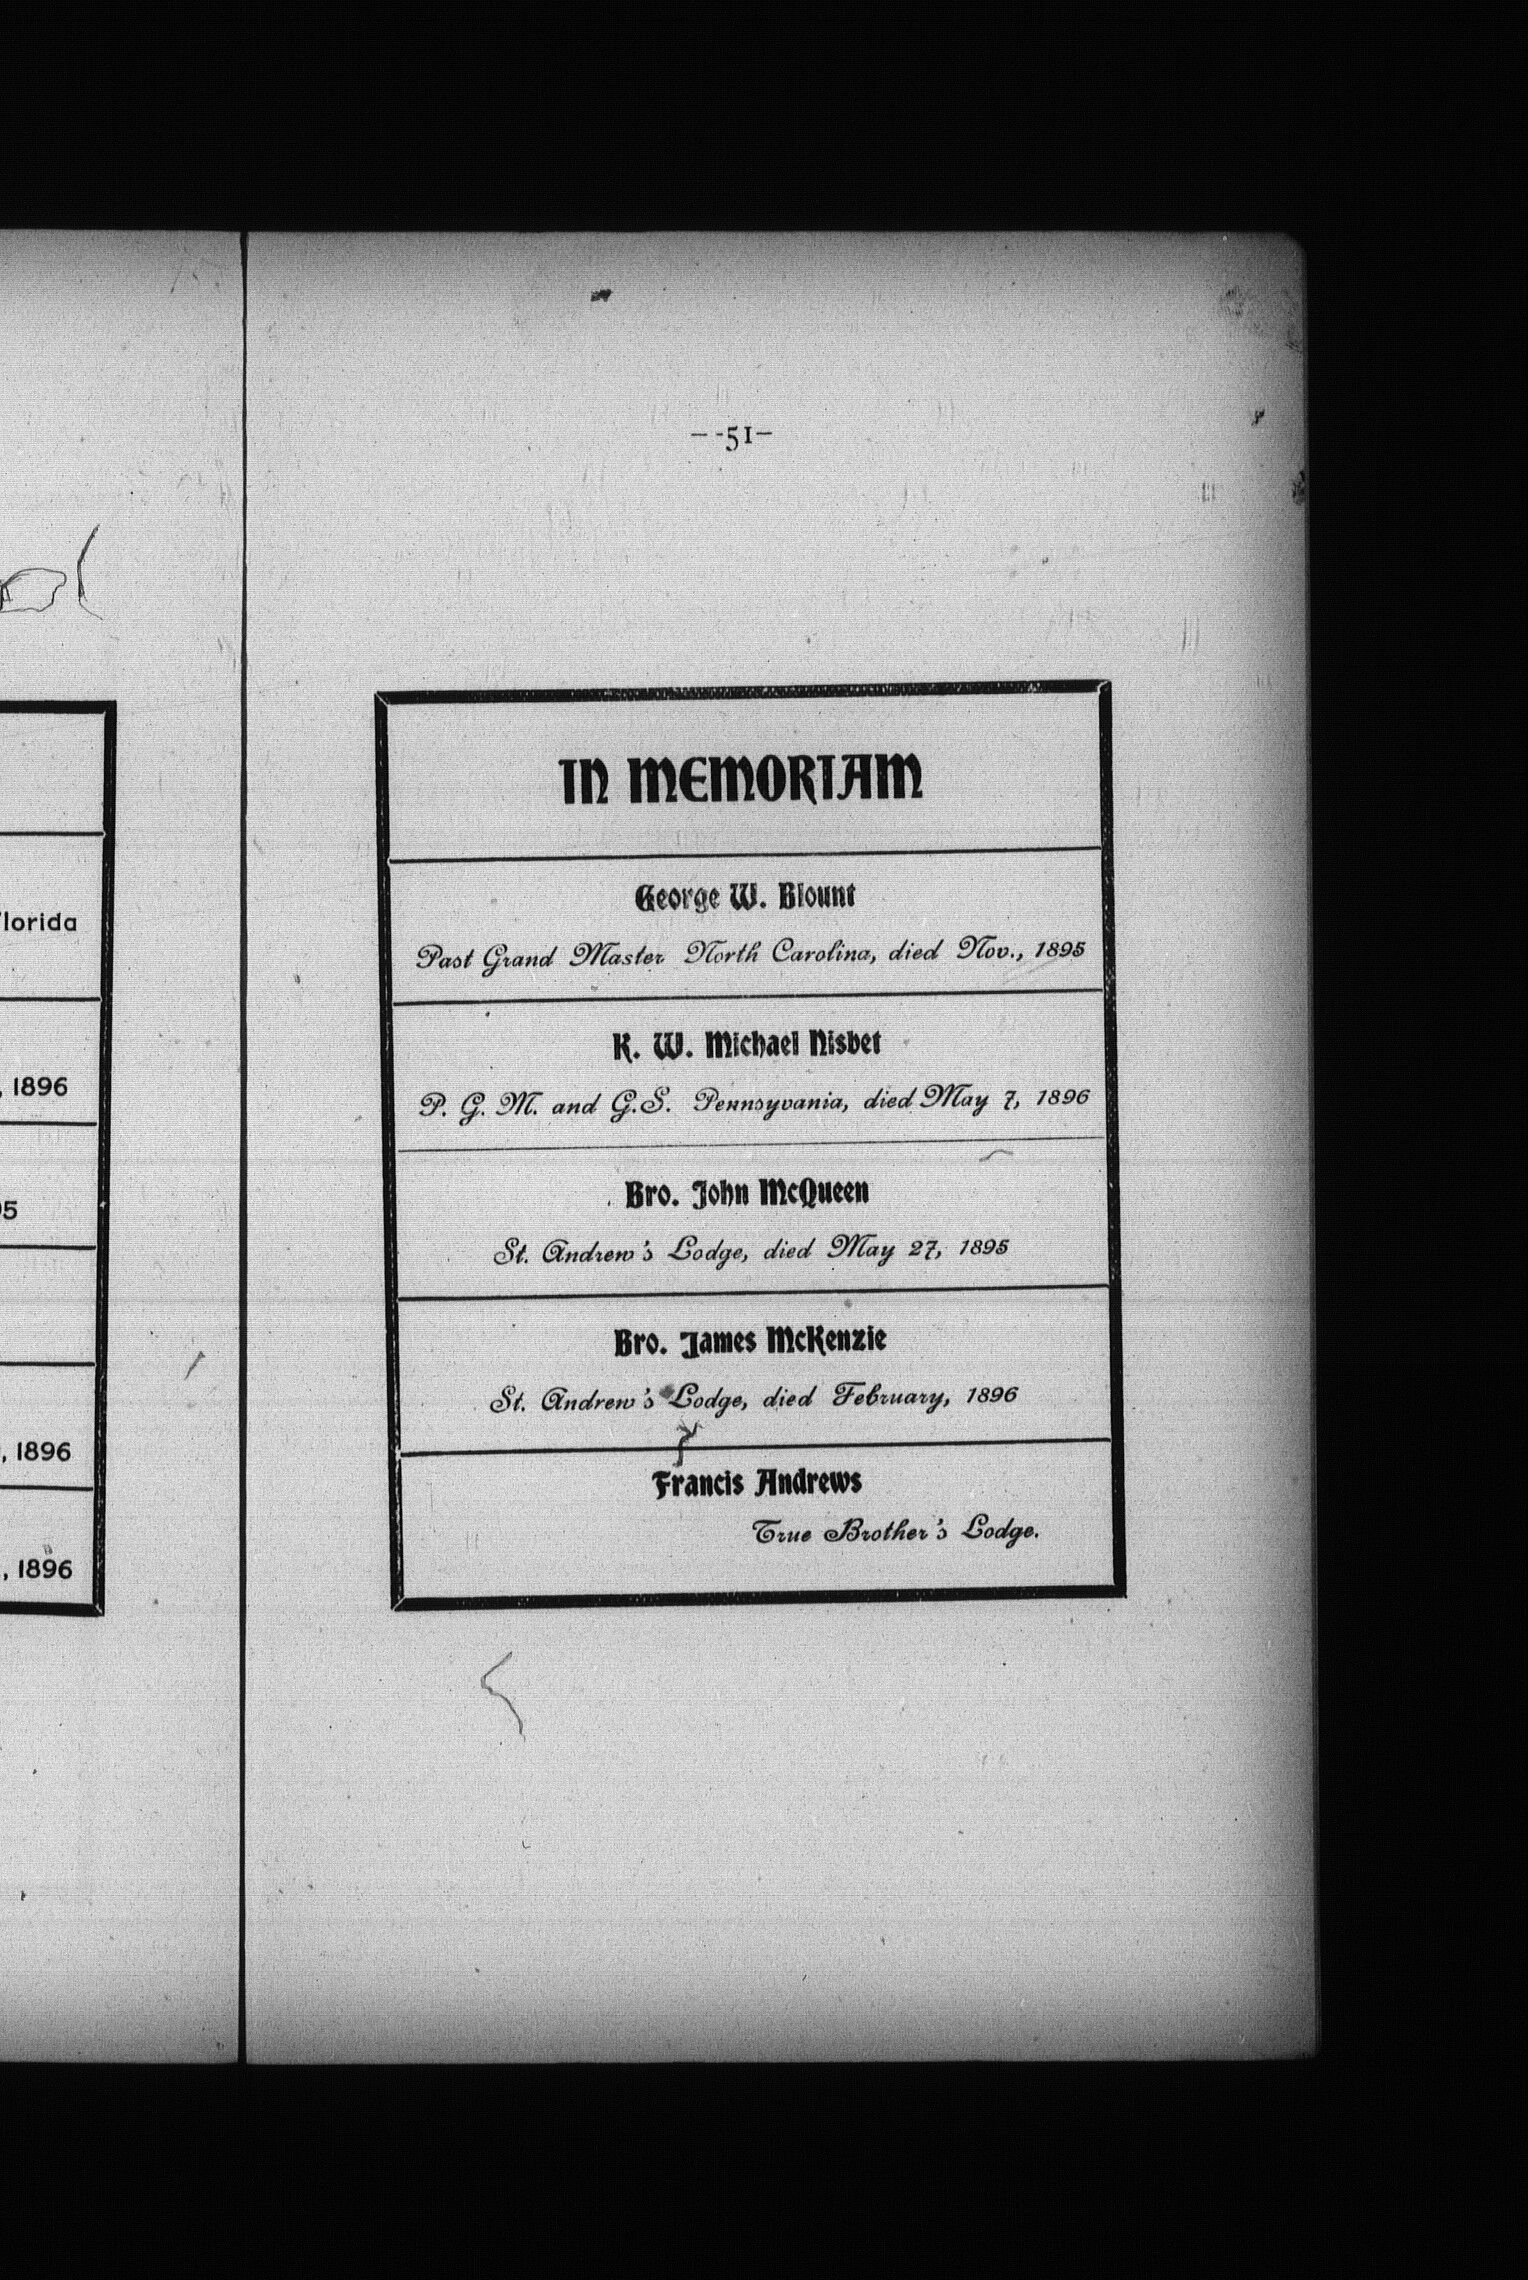 lorida
, 1896
95
, 1896
, 1896
- -51-
IN MEMORIAM
George W. Blount
Past Grand Master North Carolina, died Nov., 1895
R. W. Michael Nisbet
P. G. M. and G.S. Pennsyvania, died May 7, 1896
Bro. John McQueen
St. Andrew's Lodge, died May 27, 1895
Bro. James McKenzie
St. Andrew's Lodge, died February, 1896
Francis Andrews
True Brother's Lodge.